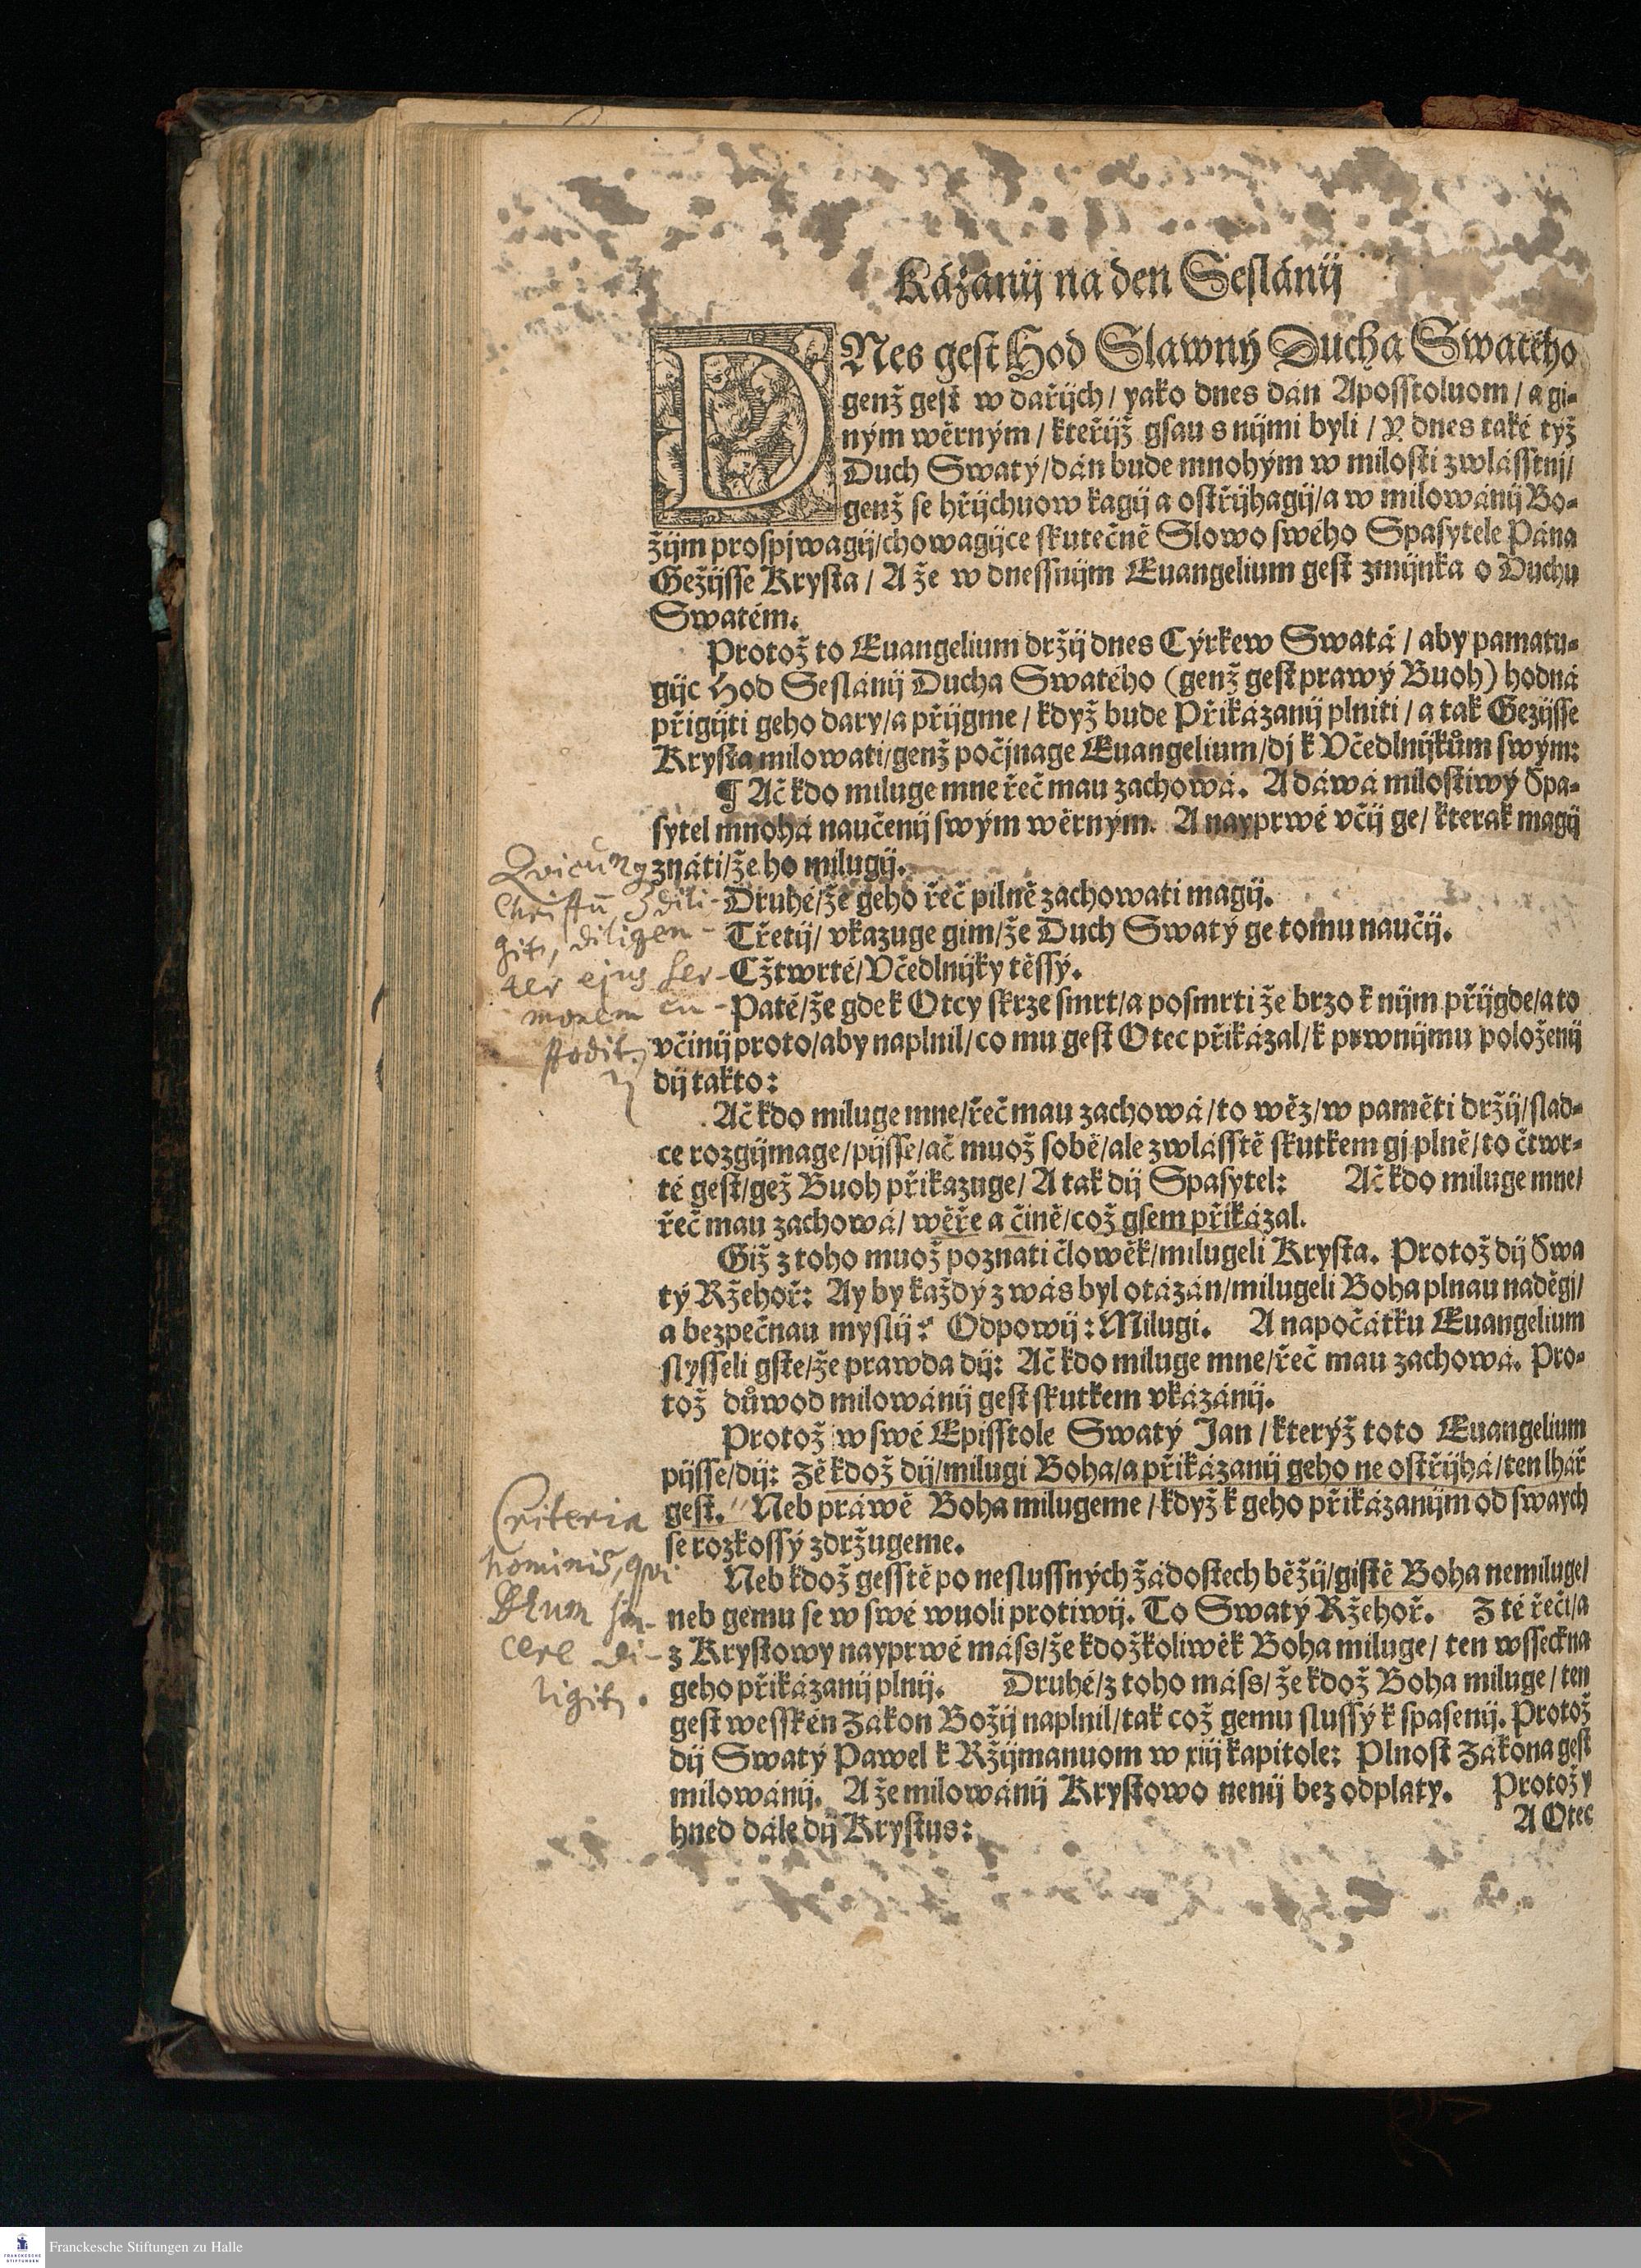 Kázanij na den Seslánij
DNes gest Hod Slawný Ducha Swatého
genž gest w dařijch / yako dnes dán Aposstoluom / a gi-
ným wěrným / kteřijž gsau s nijmi byli / Y dnes také týž
Duch Swatý / dán bude mnohým w milosti zwlásstnj /
genž se hřijchuow kagij a ostřijhagij / a w milowánij Bo-
žijm prospjwagij / chowagijce skutečně Slowo swého Spasytele Pána
Gežijsse Krysta / A že w dnessnijm Euangelium gest zmijnka o Duchu
Swatém.
Protož to Euangelium držij dnes Cýrkew Swatá / aby pamatu-
gijc Hod Seslánij Ducha Swatého (genž gest prawý Buoh) hodná
přigijti geho dary / a přijgme / když bude Přikázanij plniti / a tak Gezijsse
Krysta milowati / genž počjnage Euangelium / dj k Včedlnijkům swým:
¶ Ač kdo miluge mne řeč mau zachowá. A dáwá milostiwý Spa-
sytel mnohá naučenij swým wěrným. A nayprwé včij ge / kterak magij
znáti / že ho milugij.
Druhé / že geho řeč pilně zachowati magij.
Třetij / vkazuge gim / že Duch Swatý ge tomu naučij.
Cžtwrté / Včedlnijky těssý.
Páté / že gde k Otcy skrze smrt / a po smrti že brzo k nijm přijgde / a to
včinij proto / aby naplnil / co mu gest Otec přikázal / k prwnijmu položenij
dij takto:
Ač kdo miluge mne / řeč mau zachowá / to wěz / w paměti držij / slad-
ce rozgijmage / pijsse / ač muož sobě / ale zwlásstě skutkem gj plně / to čtwr-
té gest / gež Buoh přikazuge / A tak dij Spasytel: Ač kdo miluge mne /
řeč mau zachowá / wěře a čině / což gsem přikázal.
Giž z toho muož poznati člowěk / milugeli Krysta. Protož dij Swa
tý Ržehoř: Ay by každý z wás byl otázán / milugeli Boha plnau naděgj /
a bezpečnau myslij? Odpowij: Milugi. A na počátku Euangelium
slysseli gste / že prawda dij: Ač kdo miluge mne / řeč mau zachowá. Pro-
tož důwod milowánij gest skutkem vkázánij.
Protož w swé Episstole Swatý Jan / kterýž toto Euangelium
pijsse / dij: Zě kdož dij / milugi Boha / a přikázanij geho ne ostřijhá / ten lhář
gest. Neb práwě Boha milugeme / když k geho přikázanijm od swaych
se rozkossý zdržugeme.
Neb kdož gesstě po neslussných žádostech běžij / gistě Boha nemiluge /
neb gemu se w swé wuoli protiwij. To Swatý Ržehoř. Z té řeči / a
z Krystowy nayprwé máss / že kdožkoliwěk Boha miluge / ten wsseckna
geho přikázanij plnij. Druhé / z toho máss / že kdož Boha miluge / ten
gest wessken Zákon Božij naplnil / tak což gemu slussý k spasenij. Protož
dij Swatý Pawel k Ržijmanuom w xiij kapitole: Plnost Zákona gest
milowánij. A že milowánij Krystowo nenij bez odplaty. Protož y
hned dále dij Krystus:
A Otec
Christū dili-
git, diligen-
ter ejus ser-
monem cu-
stodit.
Criteria
hominis, qvi
Deum sin-
cere di-
ligit.
Franckesche Stiftungen zu Halle